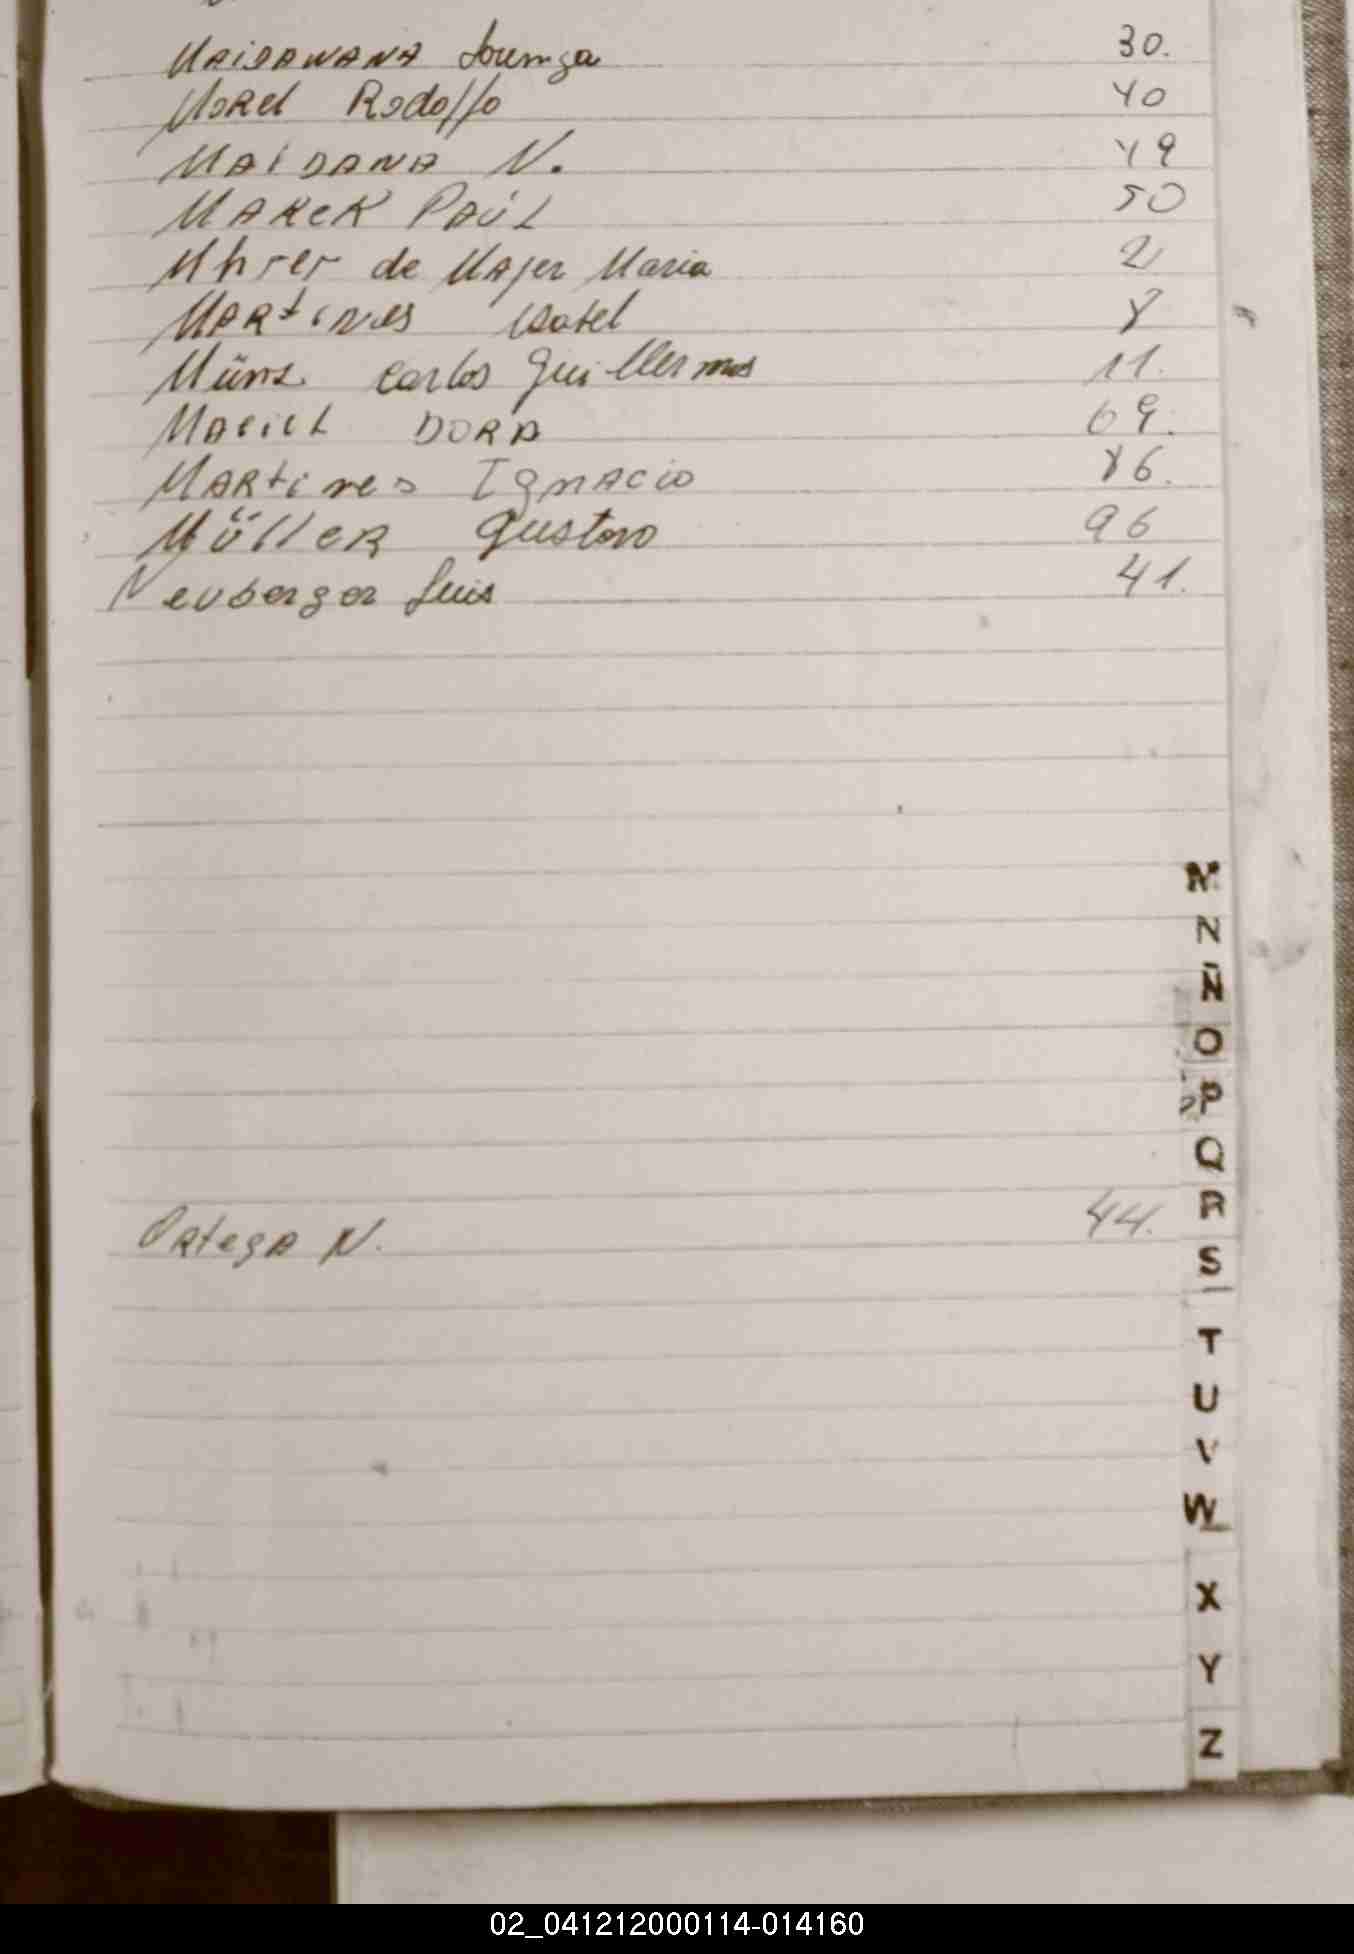 MAIDAWANA Lorenza 30.
Morel Rodolfo 40
MAIDANA N. 49
MAREK PAÚL 50
Mhrer de Majer Maria 2
MARtines Isabel 8
Müns Carlos Guillermo 11.
Maciel DORA 69.
MARtines IgnACio 86.
MüllER Gustavo 96
Neuberger Luis 41.
M
N
Ñ
O
P
Q
Ortega N. 44.
R
S
T
U
V
W
X
Y
Z
02_041212000114-014160